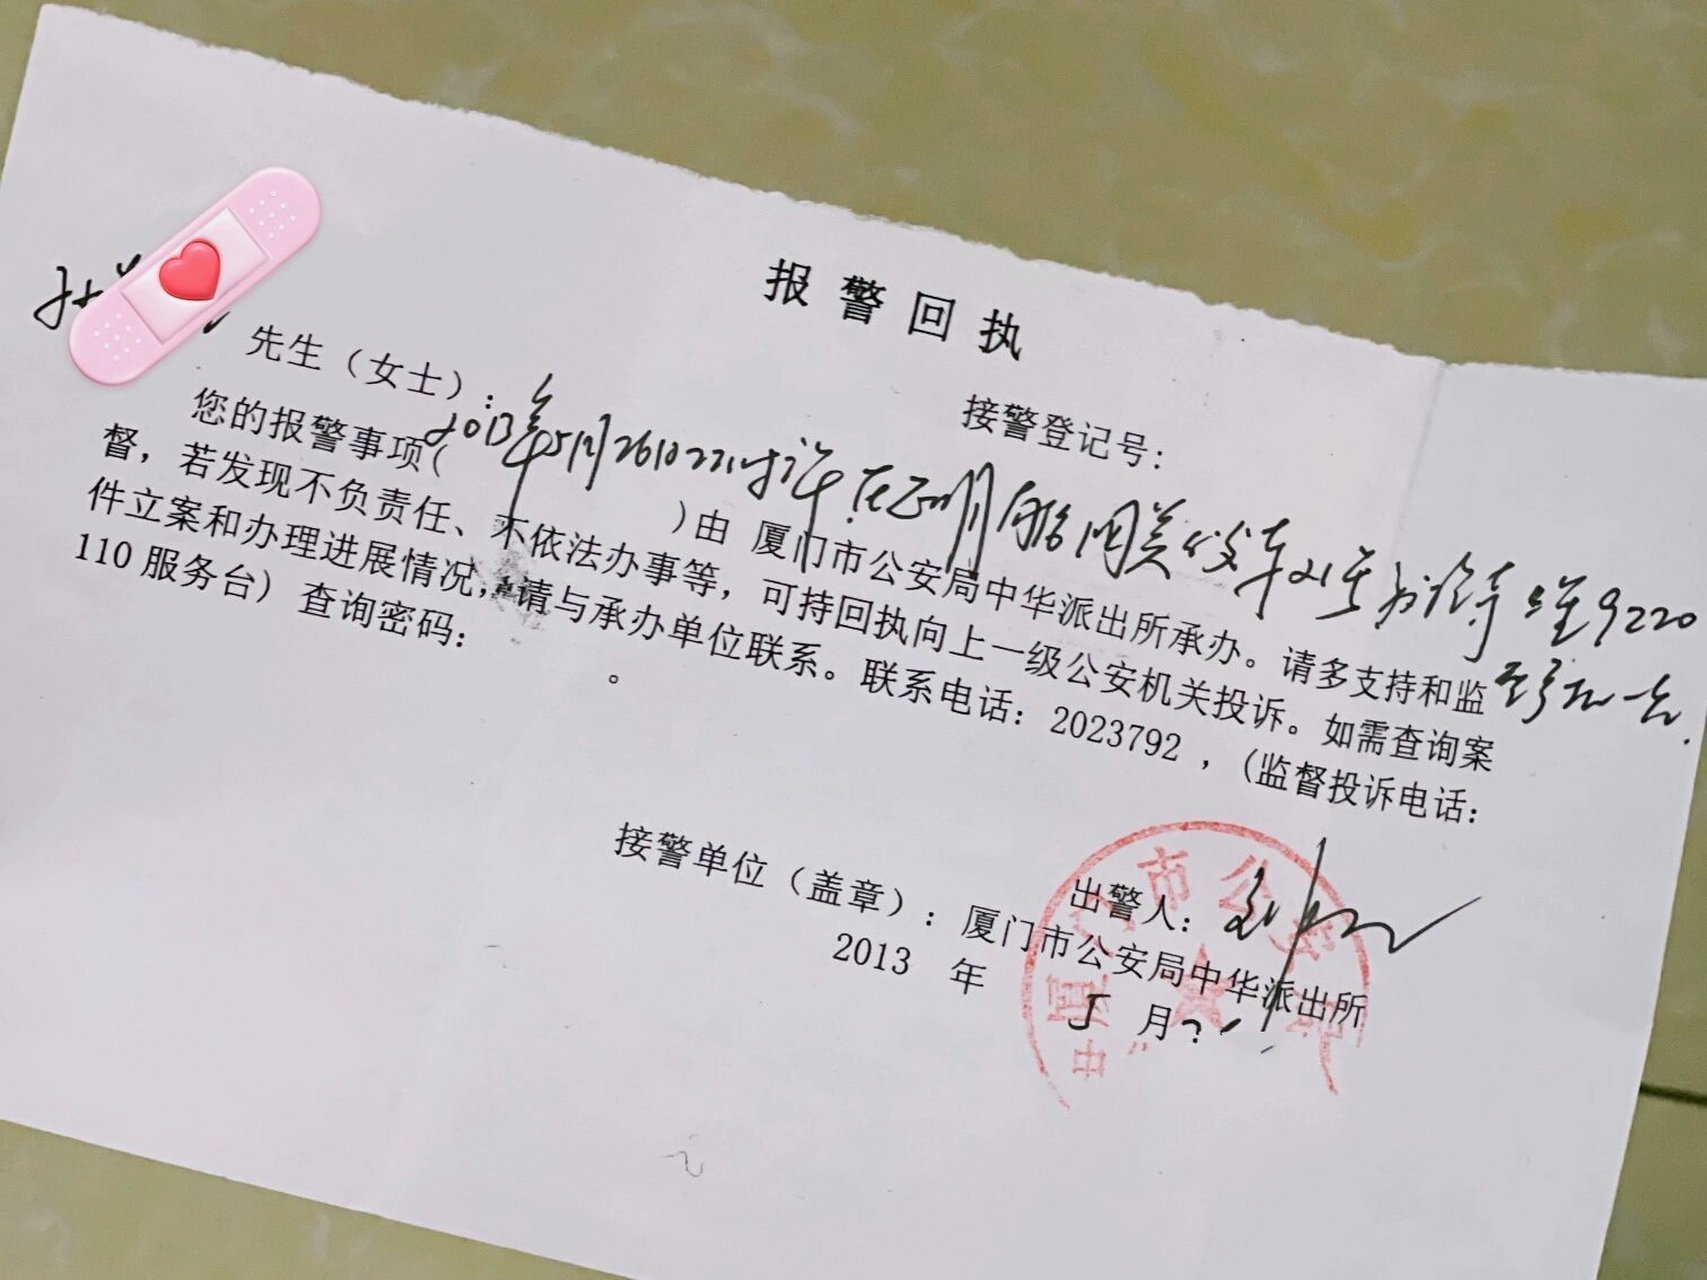 报警回执
接警登记号：
先生（女士）：
您的报警事项（2013年5月26日22时许在
）由 厦门市公安局中华派出所承办。请多支持和监
督，若发现不负责任、不依法办事等，可持回执向上一级公安机关投诉。如需查询案
件立案和办理进展情况，请与承办单位联系。联系电话：2023792 ，（监督投诉电话：
110 服务台）查询密码： 。
出警人：
接警单位（盖章）：厦门市公安局中华派出所
2013 年 5 月